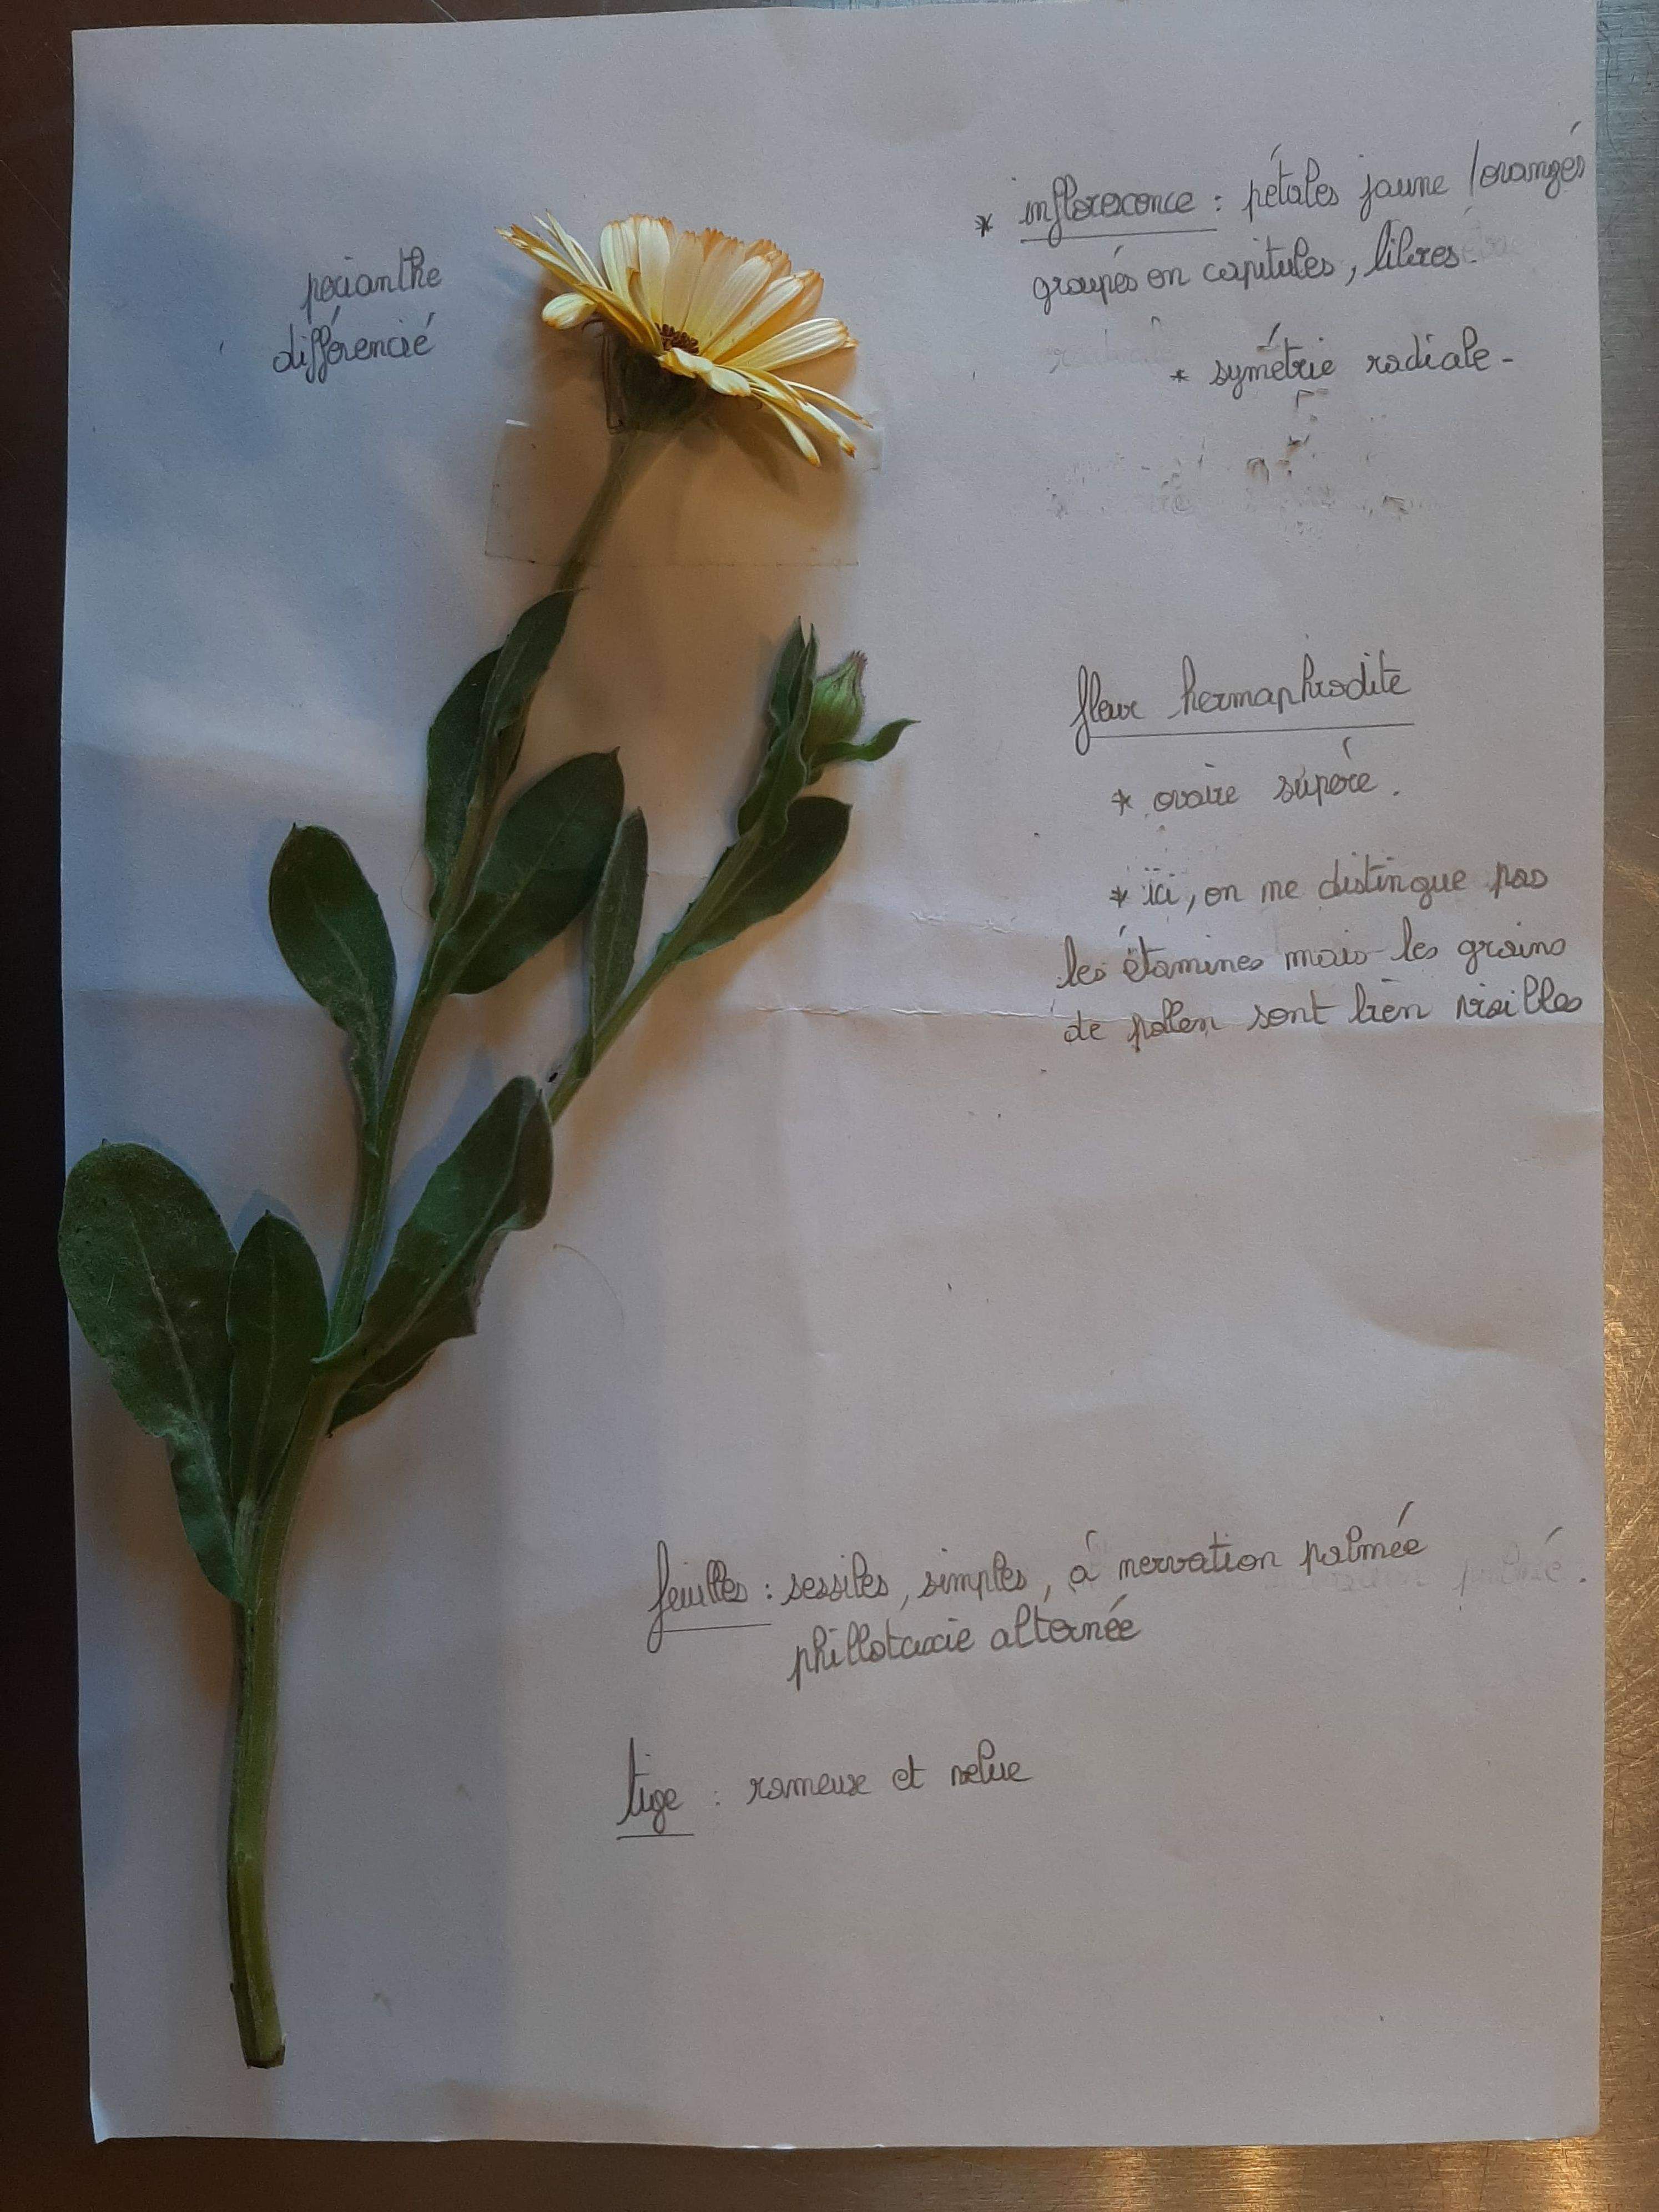 * inflorescence : pétales jaune / orangés
groupés en capitules, libres.
périanthe
différencié
* symétrie radiale -
fleur hermaphrodite
* ovaire supère.
* ici, on ne distingue pas
les étamines mais les grains
de pollen sont bien visibles
feuilles : sessiles, simples, à nervation palmée
phillotaxie alternée
tige : rameuse et velue